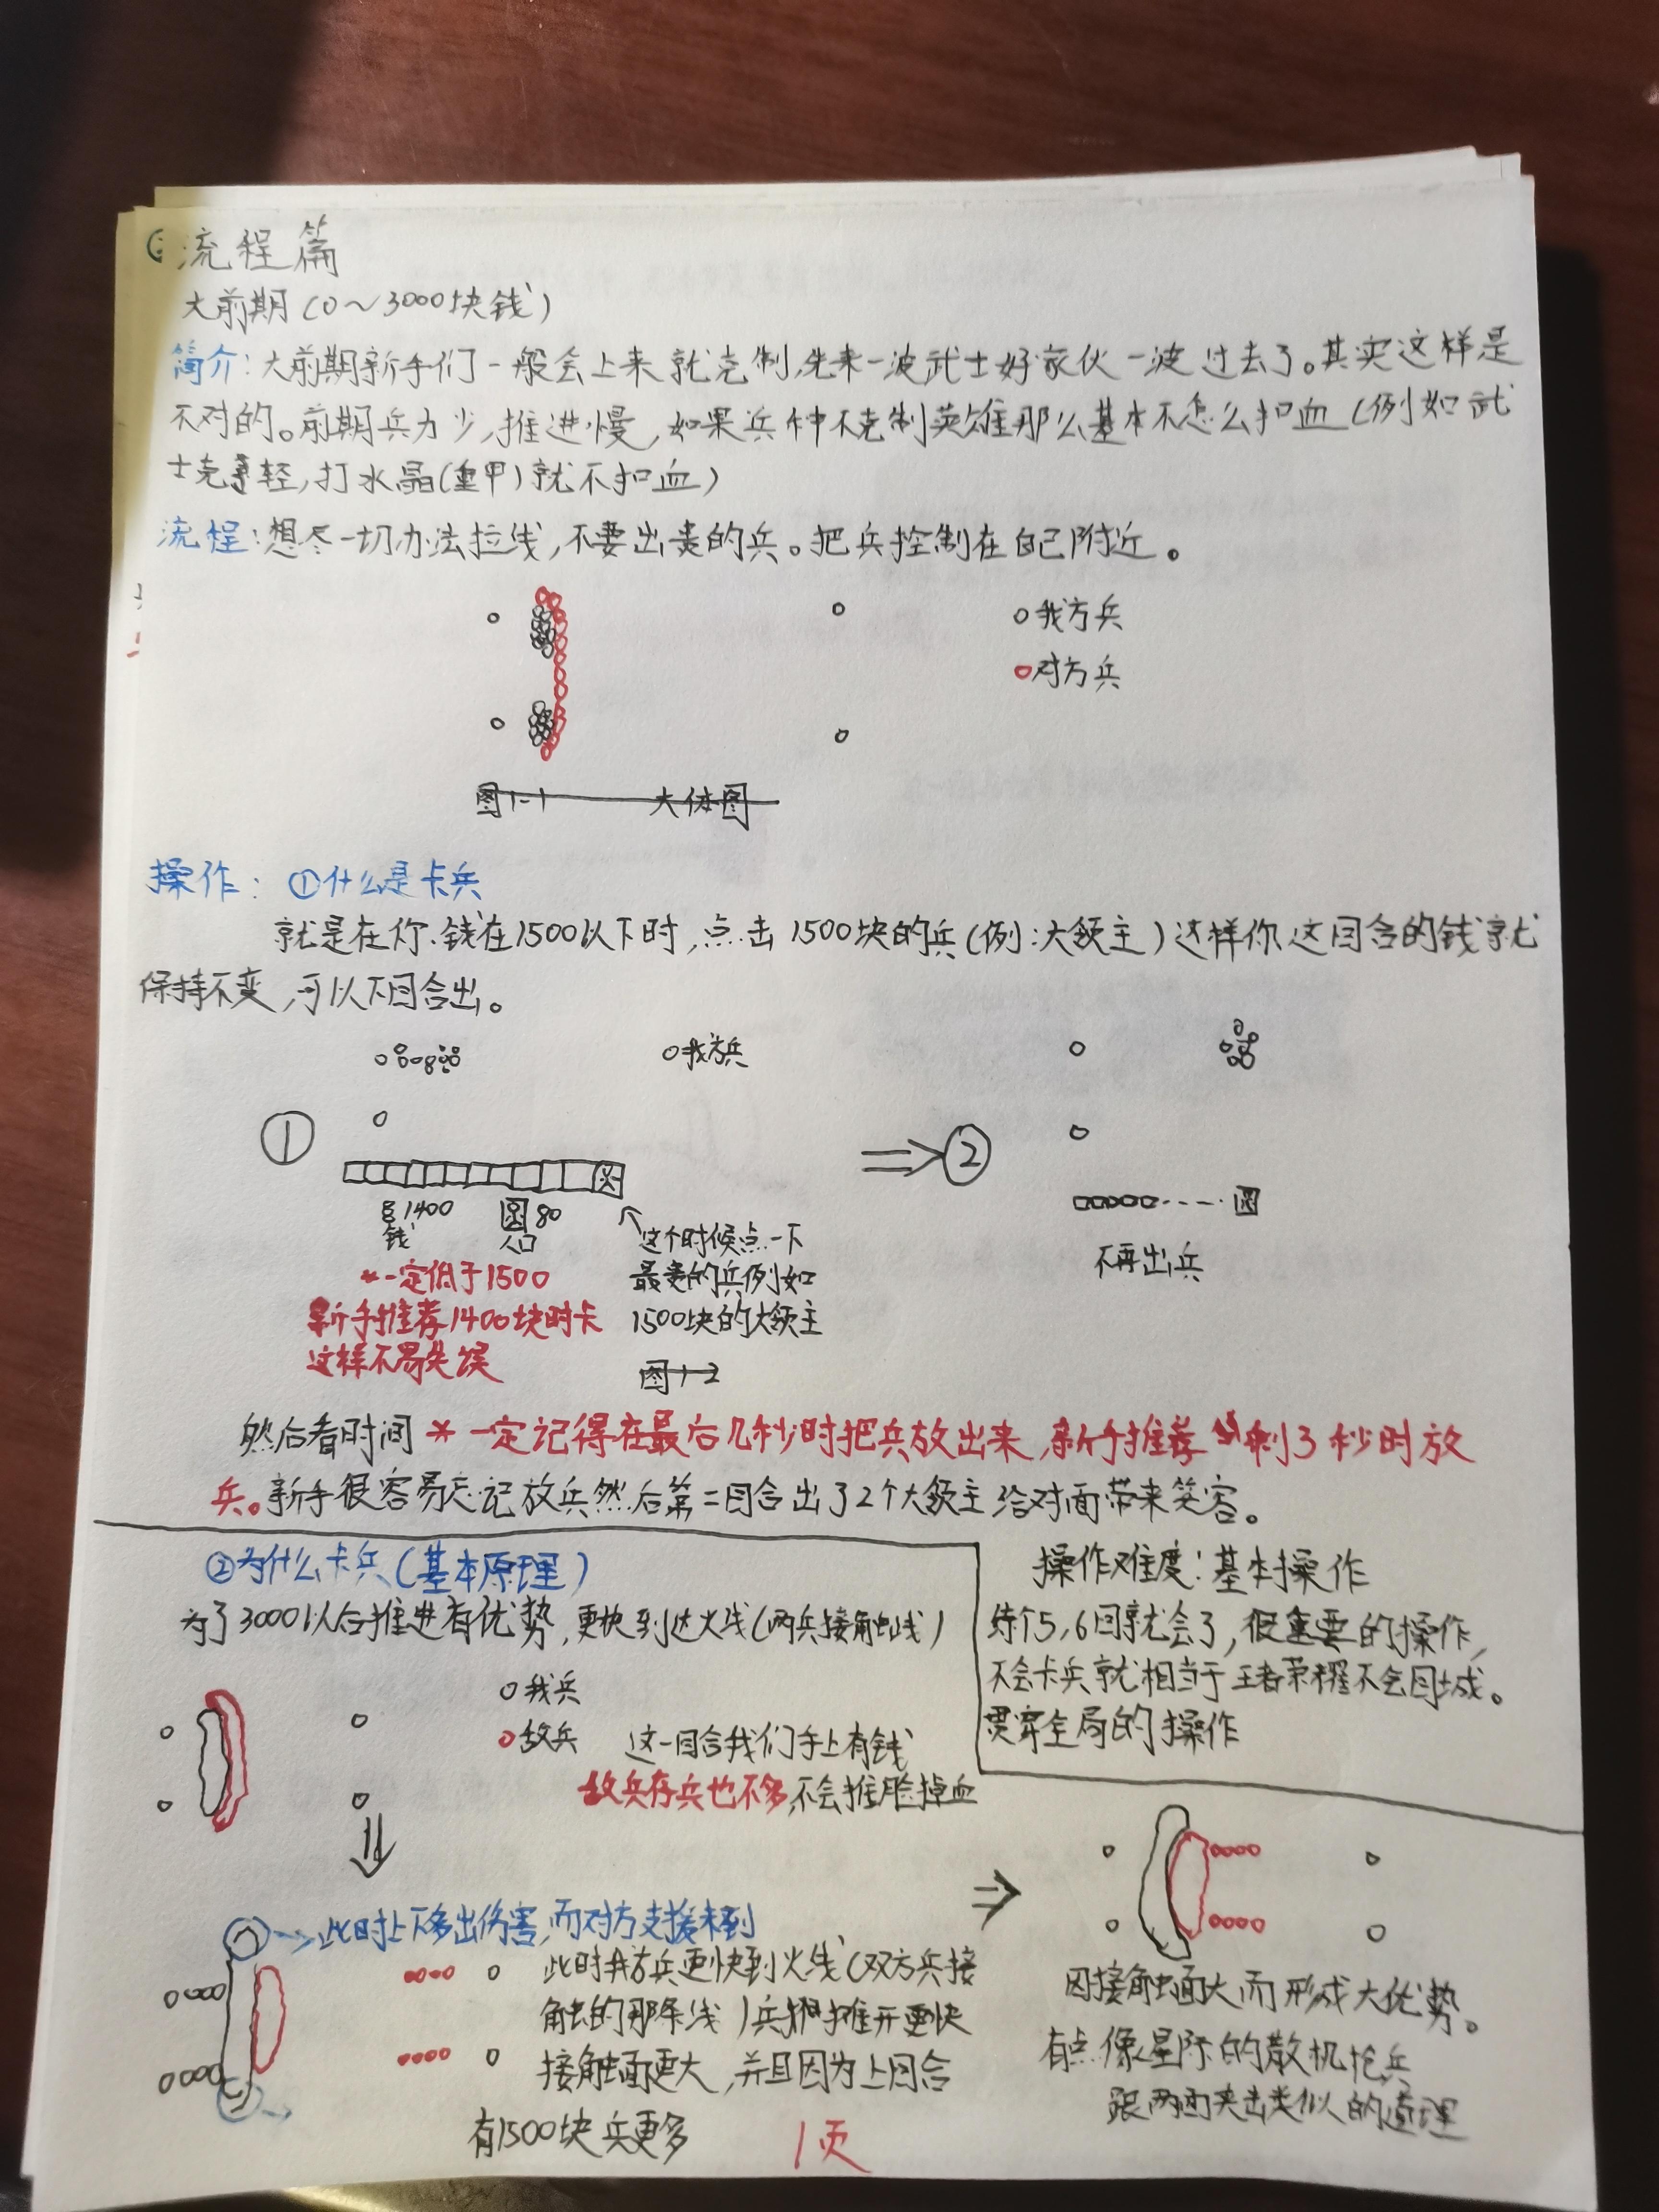 流程篇
大前期(0～3000块钱)
简介:大前期新手们一般会上来就克制,先来一波武士好家伙一波过去了。其实这样是
不对的。前期兵力少,推进慢,如果兵种不克制英雄那么基本不怎么扣血(例如武
士克轻,打水晶(重甲)就不扣血)
流程:想尽一切办法拉线,不要出贵的兵。把兵控制在自己附近。
我方兵
对方兵
图1-1 大体图
操作: ①什么是卡兵
就是在你钱在1500以下时,点击1500块的兵(例:大领主)这样你这回合的钱就
保持不变,可以下回合出。
我方兵
① ⇒②
1400 80
钱 人口
这个时候点一下
最贵的兵例如
1500块的大领主
*一定低于1500
新手推荐1400块时卡
这样不易失误
图1-2
不再出兵
然后看时间*一定记得在最后几秒时把兵放出来,新手推荐剩3秒时放
兵。新手很容易忘记放兵然后第二回合出了2个大领主给对面带来笑容。
②为什么卡兵(基本原理)
为了3000以后推进有优势,更快到达火线(两兵接触线)
我兵
敌兵
这一回合我们手上有钱
敌兵存兵也不多,不会推脸掉血
操作难度:基本操作
练个5,6回就会了,很重要的操作,
不会卡兵就相当于王者荣耀不会回城。
贯穿全局的操作
此时上下多出伤害,而对方支援未到
此时我方兵更快到火线(双方兵接
触的那条线)兵摊开更快
接触面更大,并且因为上回合
有1500块兵更多
因接触面大而形成大优势。
有点像星际的散机枪兵
跟两面夹击类似的道理
1页